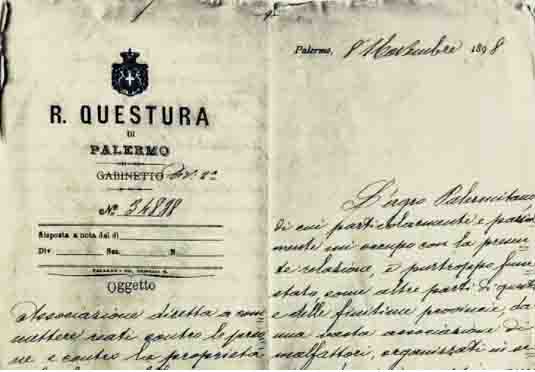 Palermo, 8 Novembre 1898
R. QUESTURA
DI
PALERMO
GABINETTO Div. 2a
No. 34898
Risposta a nota del dì
Div. Sez. N.
Oggetto
Associazione diretta a com
mettere reati contro le perso
ne e contro la proprietà
L'agro Palermitano
di cui particolarmente e parzial
mente mi occupo con la presen
te relazione, è purtroppo fune
stato come altre parti di questa
e delle finitime provincie, da
una vasta associazione di
malfattori, organizzati in se